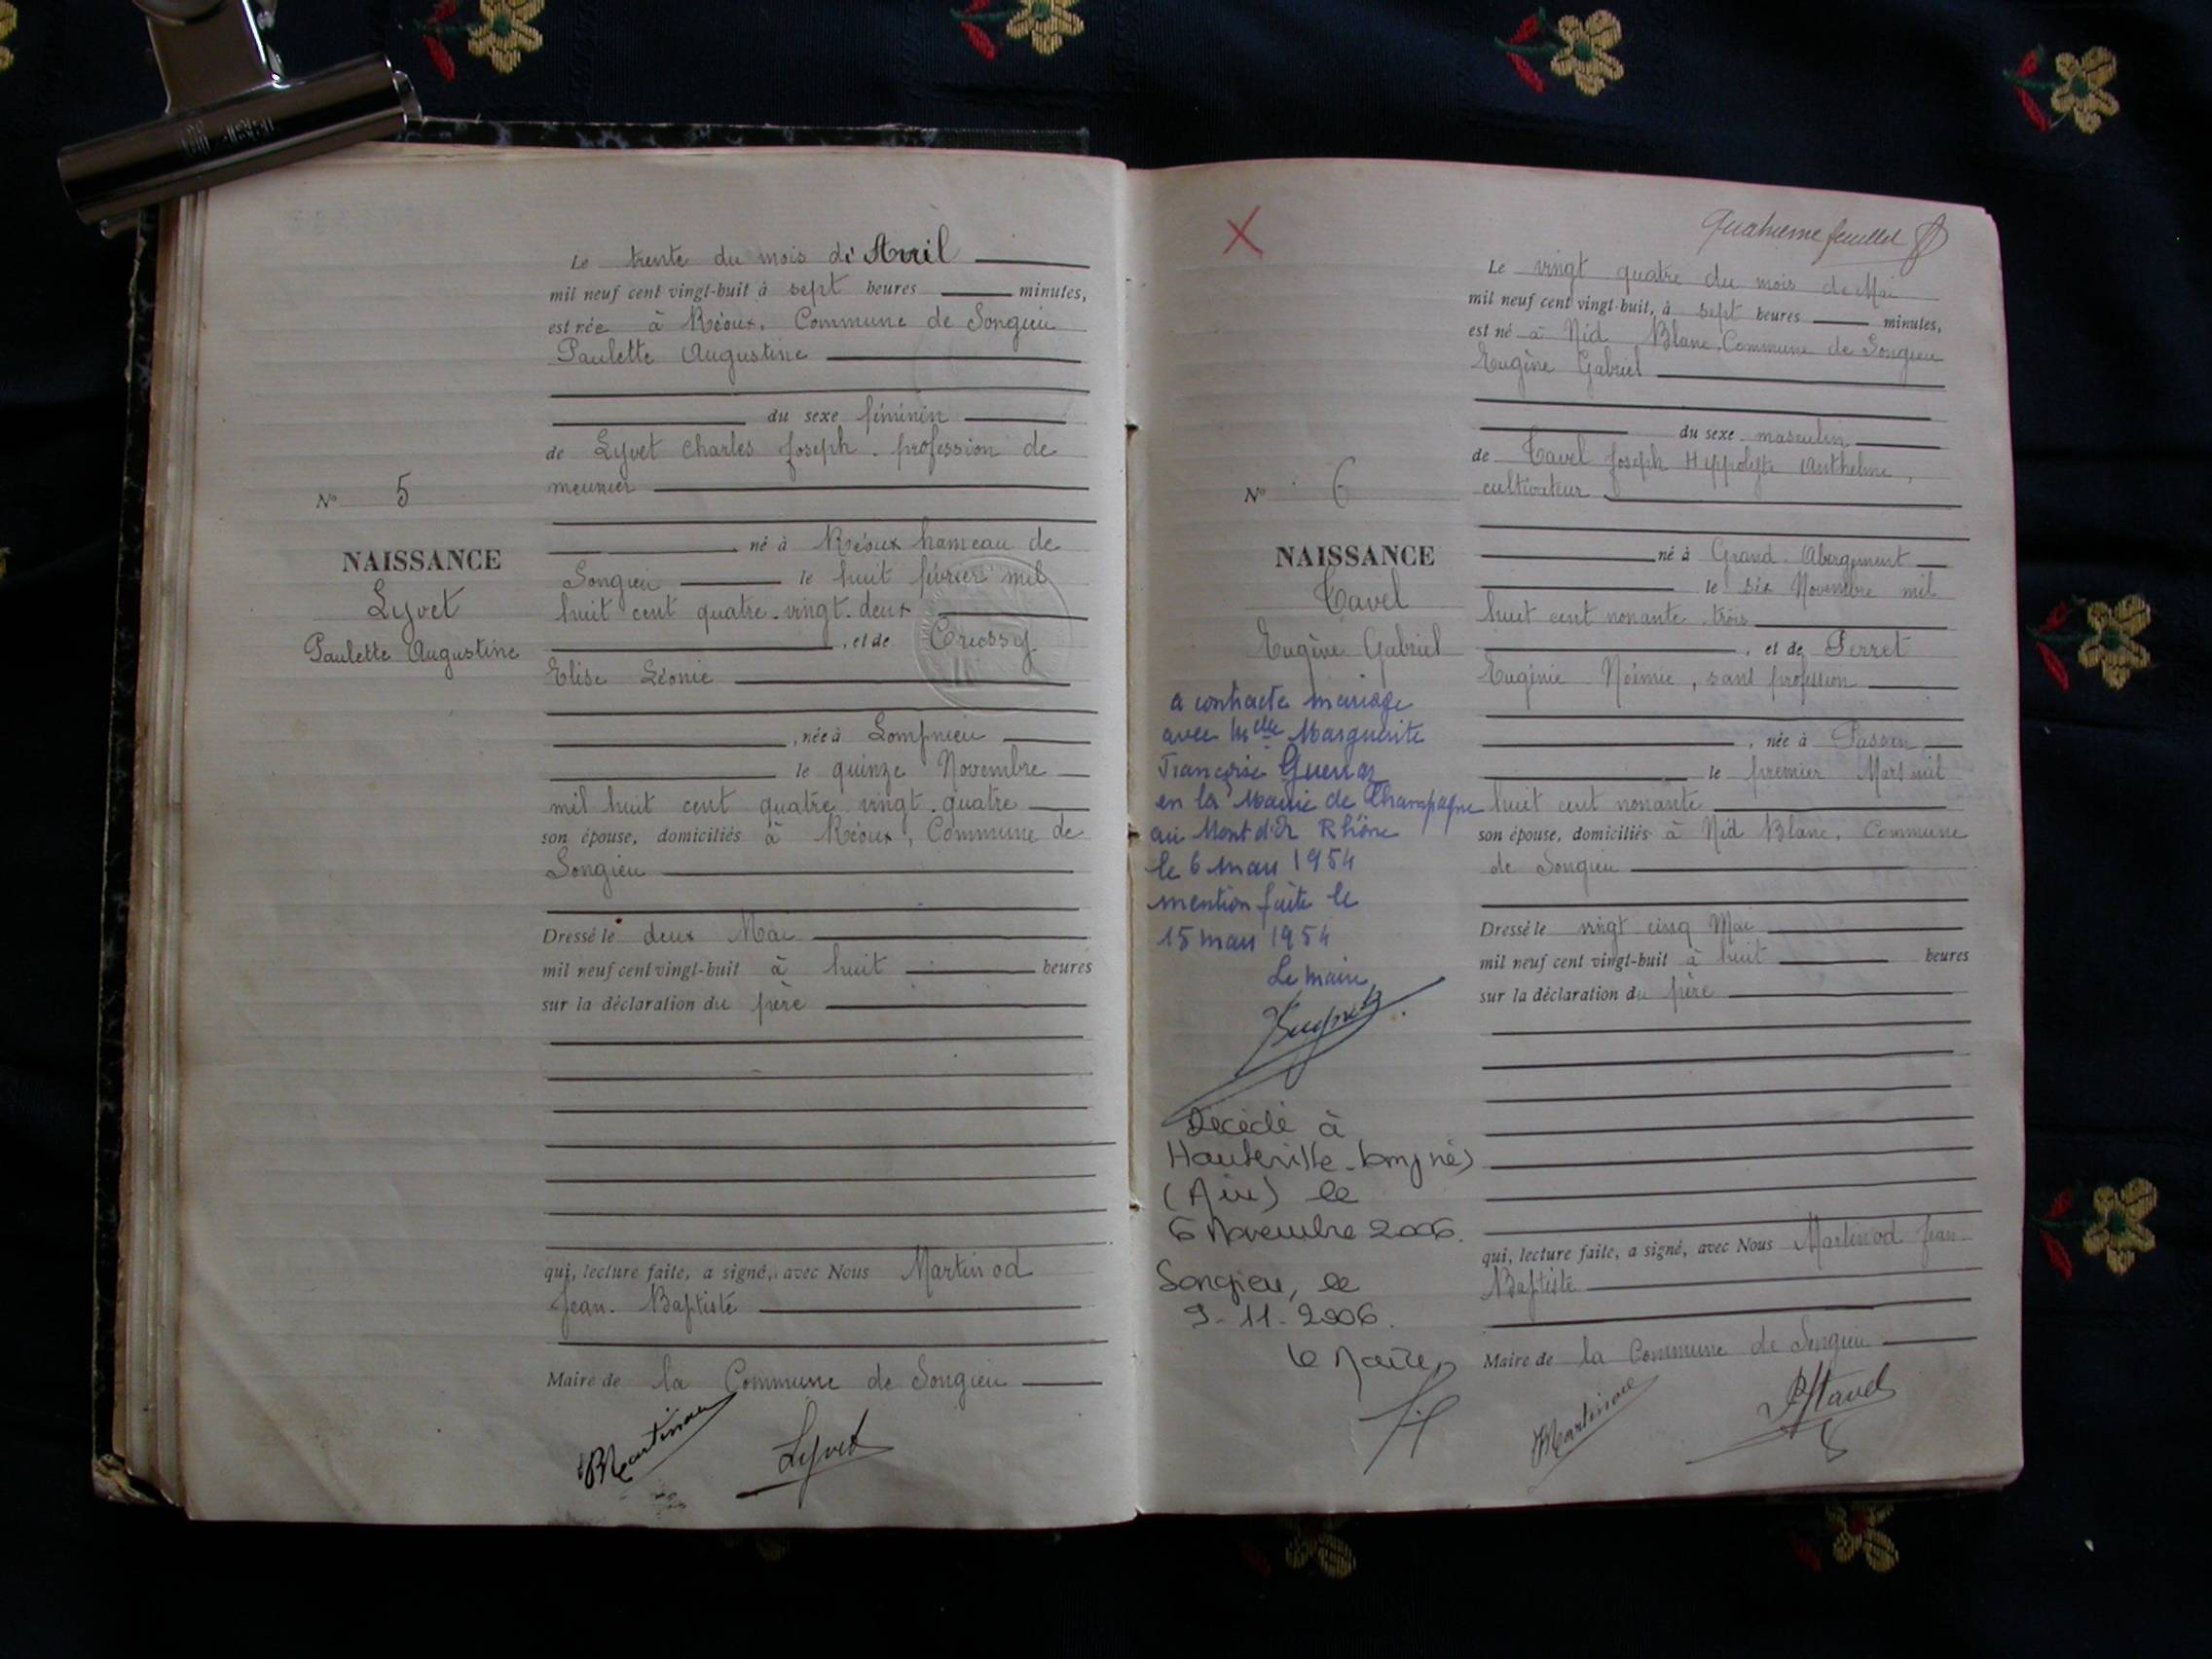 Le trente du mois de Avril
mil neuf cent vingt-huit à sept heures minutes,
est née à Réoux, Commune de Songieu
Paulette Augustine
du sexe féminin
de Lyvet Charles Joseph. profession de
meunier
N° 5
né à Réoux hameau de
NAISSANCE
Songieu le huit février mil
Lyvet
huit cent quatre-vingt-deux
Paulette Augustine
, et de
Elise Léonie
, née à Lompnieu
le quinze Novembre
mil huit cent quatre vingt-quatre
son épouse, domiciliés à Réoux, Commune de
Songieu
Dressé le deux Mai
mil neuf cent vingt-huit à huit heures
sur la déclaration du père
qui, lecture faite, a signé, avec Nous Martinod
Jean-Baptiste
Maire de la Commune de Songieu
Martinod
Lyvet
X
Quatrième feuillet
Le vingt quatre du mois de Mai
mil neuf cent vingt-huit, à sept heures minutes,
est né à Nid Blanc, Commune de Songieu
Eugène Gabriel
du sexe masculin
de Tavel Joseph Hippolyte Anthelme,
cultivateur
N° 6
né à Grand-Abergement
le six Novembre mil
huit cent nonante-trois
, et de Perret
Eugénie Noémie, sans profession
, née à Passin
le premier Mars mil
huit cent nonante
son épouse, domiciliés à Nid Blanc, Commune
de Songieu
Dressé le vingt cinq Mai
mil neuf cent vingt-huit à huit heures
sur la déclaration du père
qui, lecture faite, a signé, avec Nous Martinod Jean
Baptiste
Maire de la Commune de Songieu
Martinod
NAISSANCE
Tavel
Eugène Gabriel
a contracté mariage
avec Melle Marguerite
Françoise
en la Mairie de Champagne
au Mont d'Or Rhône
le 6 mars 1954
mention faite le
15 mars 1954
Le maire
Décédé à
Hauteville-Lompnes
(Ain) le
6 Novembre 2006.
Songieu, le
9-11-2006.
Le Maire,